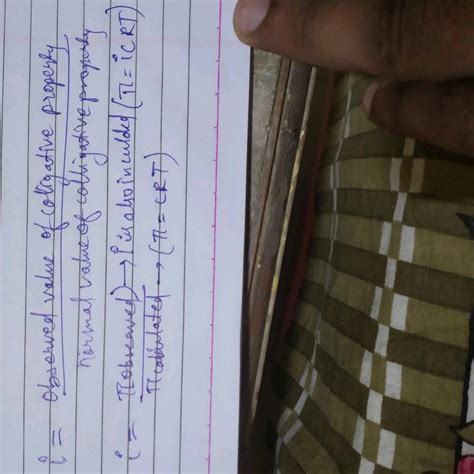 i = Observed value of colligative property
Normal value of colligative property
i = π observed → i is also inculded (π = i C R T)
π calculated → (π = CRT)